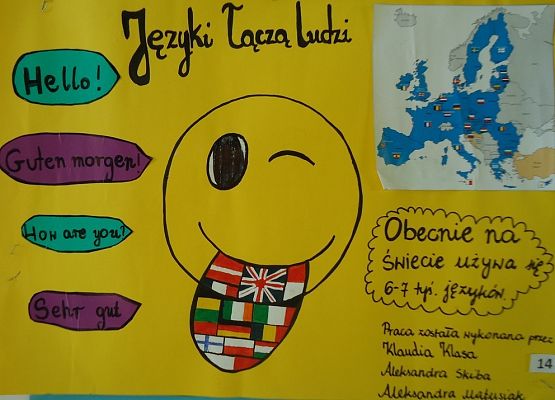 Języki łączą ludzi
Hello!
Guten morgen!
How are you?
Sehr gut
Obecnie na
świecie używa się
6-7 tyś. języków.
Praca została wykonana przez
Klaudia Klasa
Aleksandra Skiba
Aleksandra Matusiak
14